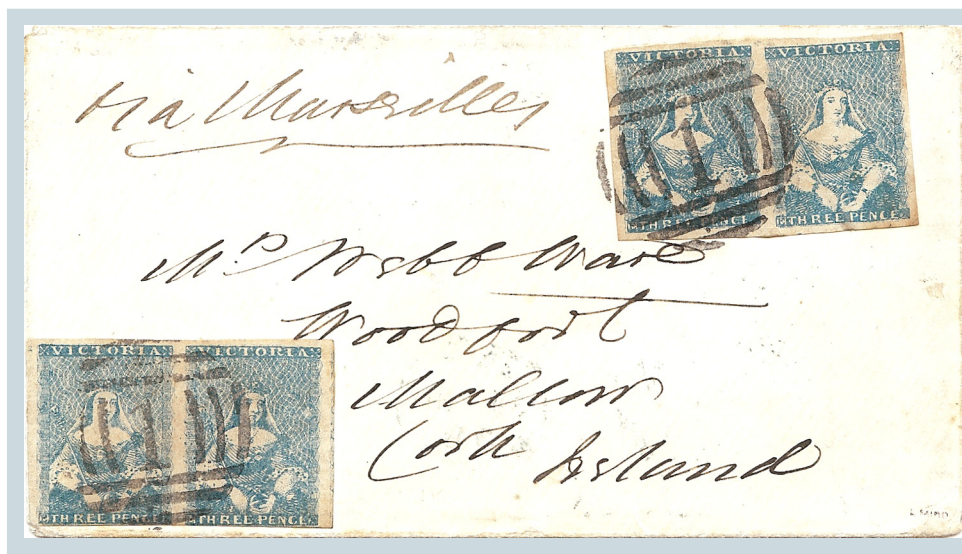 via Marseilles
VICTORIA VICTORIA
1
THREE PENCE THREE PENCE
Mrs Webb Ware
Woodfort
Mallow
Cork Ireland
VICTORIA VICTORIA
1
THREE PENCE THREE PENCE